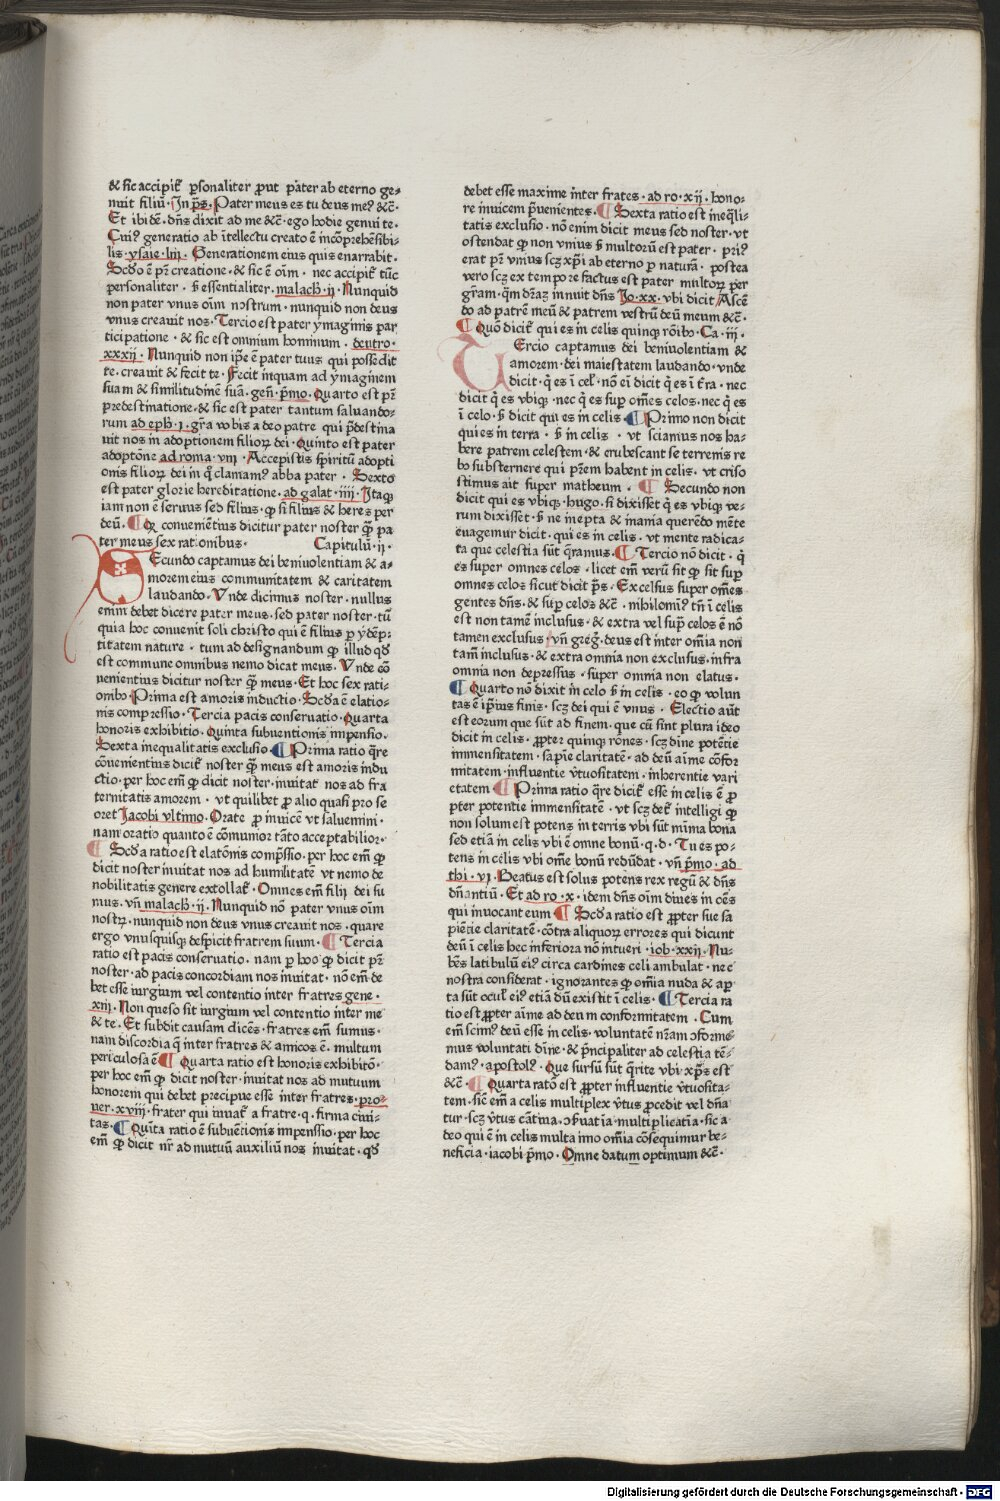 & sic accipit᷑ ꝑsonaliter ꝓut pater ab eterno ge⸗
nuit filiū· In ps̄· Pater meus es tu deus meꝰ &c̄·
Et ibidē· dn̄s dixit ad me &c̄· ego hodie genui te·
Cuiꝰ generatio ab ītellectu creato ē incōprehēsibi⸗
lis· ysaie·liij· Generationem eius quis enarrabit·
Scd̄o ē pr̄ creatione· & sic ē oīm · nec accipit᷑ tūc
personaliter · s̄ essentialiter· malach̄·ij· Nunquid
non pater vnus oīm nostrum · nunquid non deus
vnus creauit nos· Tercio est pater ymaginis par
ticipatione · & sic est omnium hominum · deutro·
xxxij· Nunquid non ip̄e ē pater tuus qui possedit
te· creauit & fecit te· Fecit inquam ad ymaginem
suam & similitudinē suā· gen̄· pm̄o· Quarto est pr̄
predestinatione· & sic est pater tantum saluando⸗
rum ad eph̄·i· gr̄a vobis a deo patre qui p̄destina
uit nos in adoptionem filioꝝ dei· Quinto est pater
adoptōne ad roma·viij· Accepistis spiritū adopti
onis filioꝝ dei in q̄ clamamꝰ abba pater · Sexto
est pater glorie hereditatione· ad galat·iiij· Itaqꝫ
iam non ē seruus sed filius· qꝫ si filius & heres per
deū· ¶ Qꝫ conuenientius dicitur pater noster qꝫ pa
ter meus sex rationibus· Capitulū·ij·
Secundo captamus dei beniuolentiam & a⸗
morem eius communitatem & caritatem
laudando· Vnde dicimus noster· nullus
enim debet dicere pater meus· sed pater noster· tū
quia hoc conuenit soli christo qui ē filius ꝑ ydēp⸗
titatem nature · tum ad designandum qꝫ illud qd̄
est commune omnibus nemo dicat meus· Vnde cō
uenientius dicitur noster qꝫ meus· Et hoc sex rati⸗
onibꝰ· Prima est amoris inductio· Scd̄a ē elatio⸗
nis compressio· Tercia pacis conseruatio· Quarta
honoris exhibitio· Quinta subuentionis impensio·
Sexta inequalitatis exclusio· ¶ Prima ratio q̄re
cōuenientius dicit᷑ noster qꝫ meus est amoris indu
ctio· per hoc em̄ qꝫ dicit noster· inuitat nos ad fra
ternitatis amorem · vt quilibet ꝓ alio quasi pro se
oret Jacobi vltimo· Orate ꝓ inuicē vt saluemini·
nam oratio quanto ē cōmunior tāto acceptabilior·
¶ Scd̄a ratio est elatōnis comp̄ssio· per hoc em̄ qꝫ
dicit noster inuitat nos ad humilitatē vt nemo de
nobilitatis genere extollat᷑· Omnes em̄ filij dei su
mus· vn̄ malach̄·ij· Nunquid nō pater vnus oīm
nostꝝ· nunquid non deus vnus creauit nos· quare
ergo vnusquisqꝫ despicit fratrem suum· ¶ Tercia
ratio est pacis conseruatio· nam ꝑ hoc qꝫ dicit pr̄
noster· ad pacis concordiam nos inuitat· nō em̄ de
bet esse iurgium vel contentio inter fratres gene·
xiij· Non queso sit iurgium vel contentio inter me
& te· Et subdit causam dicēs· fratres em̄ sumus·
nam discordia q̄ inter fratres & amicos ē· multum
periculosa ē ¶ Quarta ratio est honoris exhibitō·
per hoc em̄ qꝫ dicit noster· inuitat nos ad mutuum
honorem qui debet precipue esse inter fratres· pro⸗
uer·xviij· frater qui iuuat᷑ a fratre· q· firma ciui⸗
tas· ¶ Quīta ratio ē subuētionis impensio· per hoc
em̄ qꝫ dicit nr̄ ad mutuū auxiliū nos inuitat· qd̄
debet esse maxime inter frates· ad ro·xij· hono⸗
re inuicem p̄uenientes· ¶ Sexta ratio est ineq̄li⸗
tatis exclusio· nō enim dicit meus sed noster· vt
ostendat qꝫ non vnius s̄ multorū est pater· priꝰ
erat pr̄ vnius scꝫ xp̄i ab eterno ꝑ naturā· postea
vero scꝫ ex tempore factus est pater multoꝝ per
gr̄am· innuit dn̄s Jo·xx· vbi dicit Ascē
do ad patrē meū & patrem vestrū deū meum &c̄·
¶ Quō dicit᷑ qui es in celis quinqꝫ rōibꝰ· Ca·iij·
Tercio captamus dei beniuolentiam &
amorem· dei maiestatem laudando· vnde
dicit· q̄ es ī cel᷑· nō ei dicit q̄ es ī t̄ra· nec
dicit q̄ es vbiqꝫ· nec q̄ es suꝑ om̄es celos· nec q̄ es
ī celo· s̄ dicit qui es in celis· ¶ Primo non dicit
qui es in terra · s̄ in celis · vt sciamus nos ha⸗
bere patrem celestem· & erubescant se terrenis re
bꝰ substernere qui pr̄em habent in celis· vt criso
stimus ait super matheum · ¶ Secundo non
dicit qui es vbiqꝫ· hugo· si dixisset q̄ es vbiqꝫ ve⸗
rum dixisset· s̄ ne inepta & inania querēdo mēte
euagemur dicit· qui es in celis· vt mente radica⸗
ta que celestia sūt q̄ramus· ¶ Tercio nō dicit· q̄
es super omnes celos· licet em̄ verū sit qꝫ sit suꝑ
omnes celos sicut dicit ps̄· Excelsus super om̄es
gentes dn̄s· & suꝑ celos &c̄ · nihilominꝰ tn̄ ī celis
est non tamē inclusus· & extra vel supꝰ celos ē nō
tamen exclusus· vn̄ greg̃· deus est inter om̄ia non
tam̄ inclusus· & extra omnia non exclusus· infra
omnia non depressus · super omnia non elatus·
¶ Quarto nō dixit in celo s̄ in celis · eo qꝫ volun
tas ē ip̄ius finis· scꝫ dei qui ē vnus · Electio aūt
est eorum que sūt ad finem· que cū sint plura ideo
dicit in celis· ꝓpter quinqꝫ rōnes· scꝫ dīne potētie
immensitatem· sapīe claritatē· ad deū aīme cōfor
mitatem· influentie v̄tuositatem· inherentie vari
etatem ¶ Prima ratio q̄re dicit᷑ esse in celis ē ꝓ
pter potentie immensitatē · vt scꝫ det᷑ intelligi qꝫ
non solum est potens in terris vbi sūt mīma bona
sed etiā in celis vbi ē omne bonū· q·d· Tu es po⸗
tens in celis vbi om̄e bonū redūdat· vn̄ pm̄o·ad
thi·vi· Beatus est solus potens rex regū & dn̄s
dn̄antiū· Et ad ro·x· idem dn̄s oīm diues in oēs
qui inuocant eum ¶ Scd̄a ratio est ꝓpter sue sa
piētie claritatē· cōtra aliquoꝝ errores qui dicunt
deū ī celis hec inferiora nō intueri· iob·xxij· Nu⸗
bēs latibulū eiꝰ· circa cardines celi ambulat· nec
nostra considerat · ignorantes qꝫ om̄ia nuda & aꝑ
ta sūt ocul᷑ eiꝰ etiā dū existit ī celis· ¶ Tercia ra
tio est ꝓpter aīme ad deum conformitatem · Cum
em̄ scimꝰ deū esse in celis· voluntatē nr̄am ↄforme⸗
mus voluntati dīne· & p̄ncipaliter ad celestia tē⸗
damꝰ· apostolꝰ· Que sursū sūt q̄rite vbi xp̄s est
&c̄· ¶ Quarta ratō est ꝓpter influentie v̄tuosita⸗
tem· sic̄ em̄ a celis multiplex v̄tus ꝓcedit vel dn̄a
tur· scꝫ v̄tus · multiplicatīa· sic a
deo qui ē in celis multa imo om̄ia cōsequimur be⸗
neficia· iacobi pm̄o· Omne datum optimum &c̄·
Digitalisierung gefördert durch die Deutsche Forschungsgemeinschaft - DFG